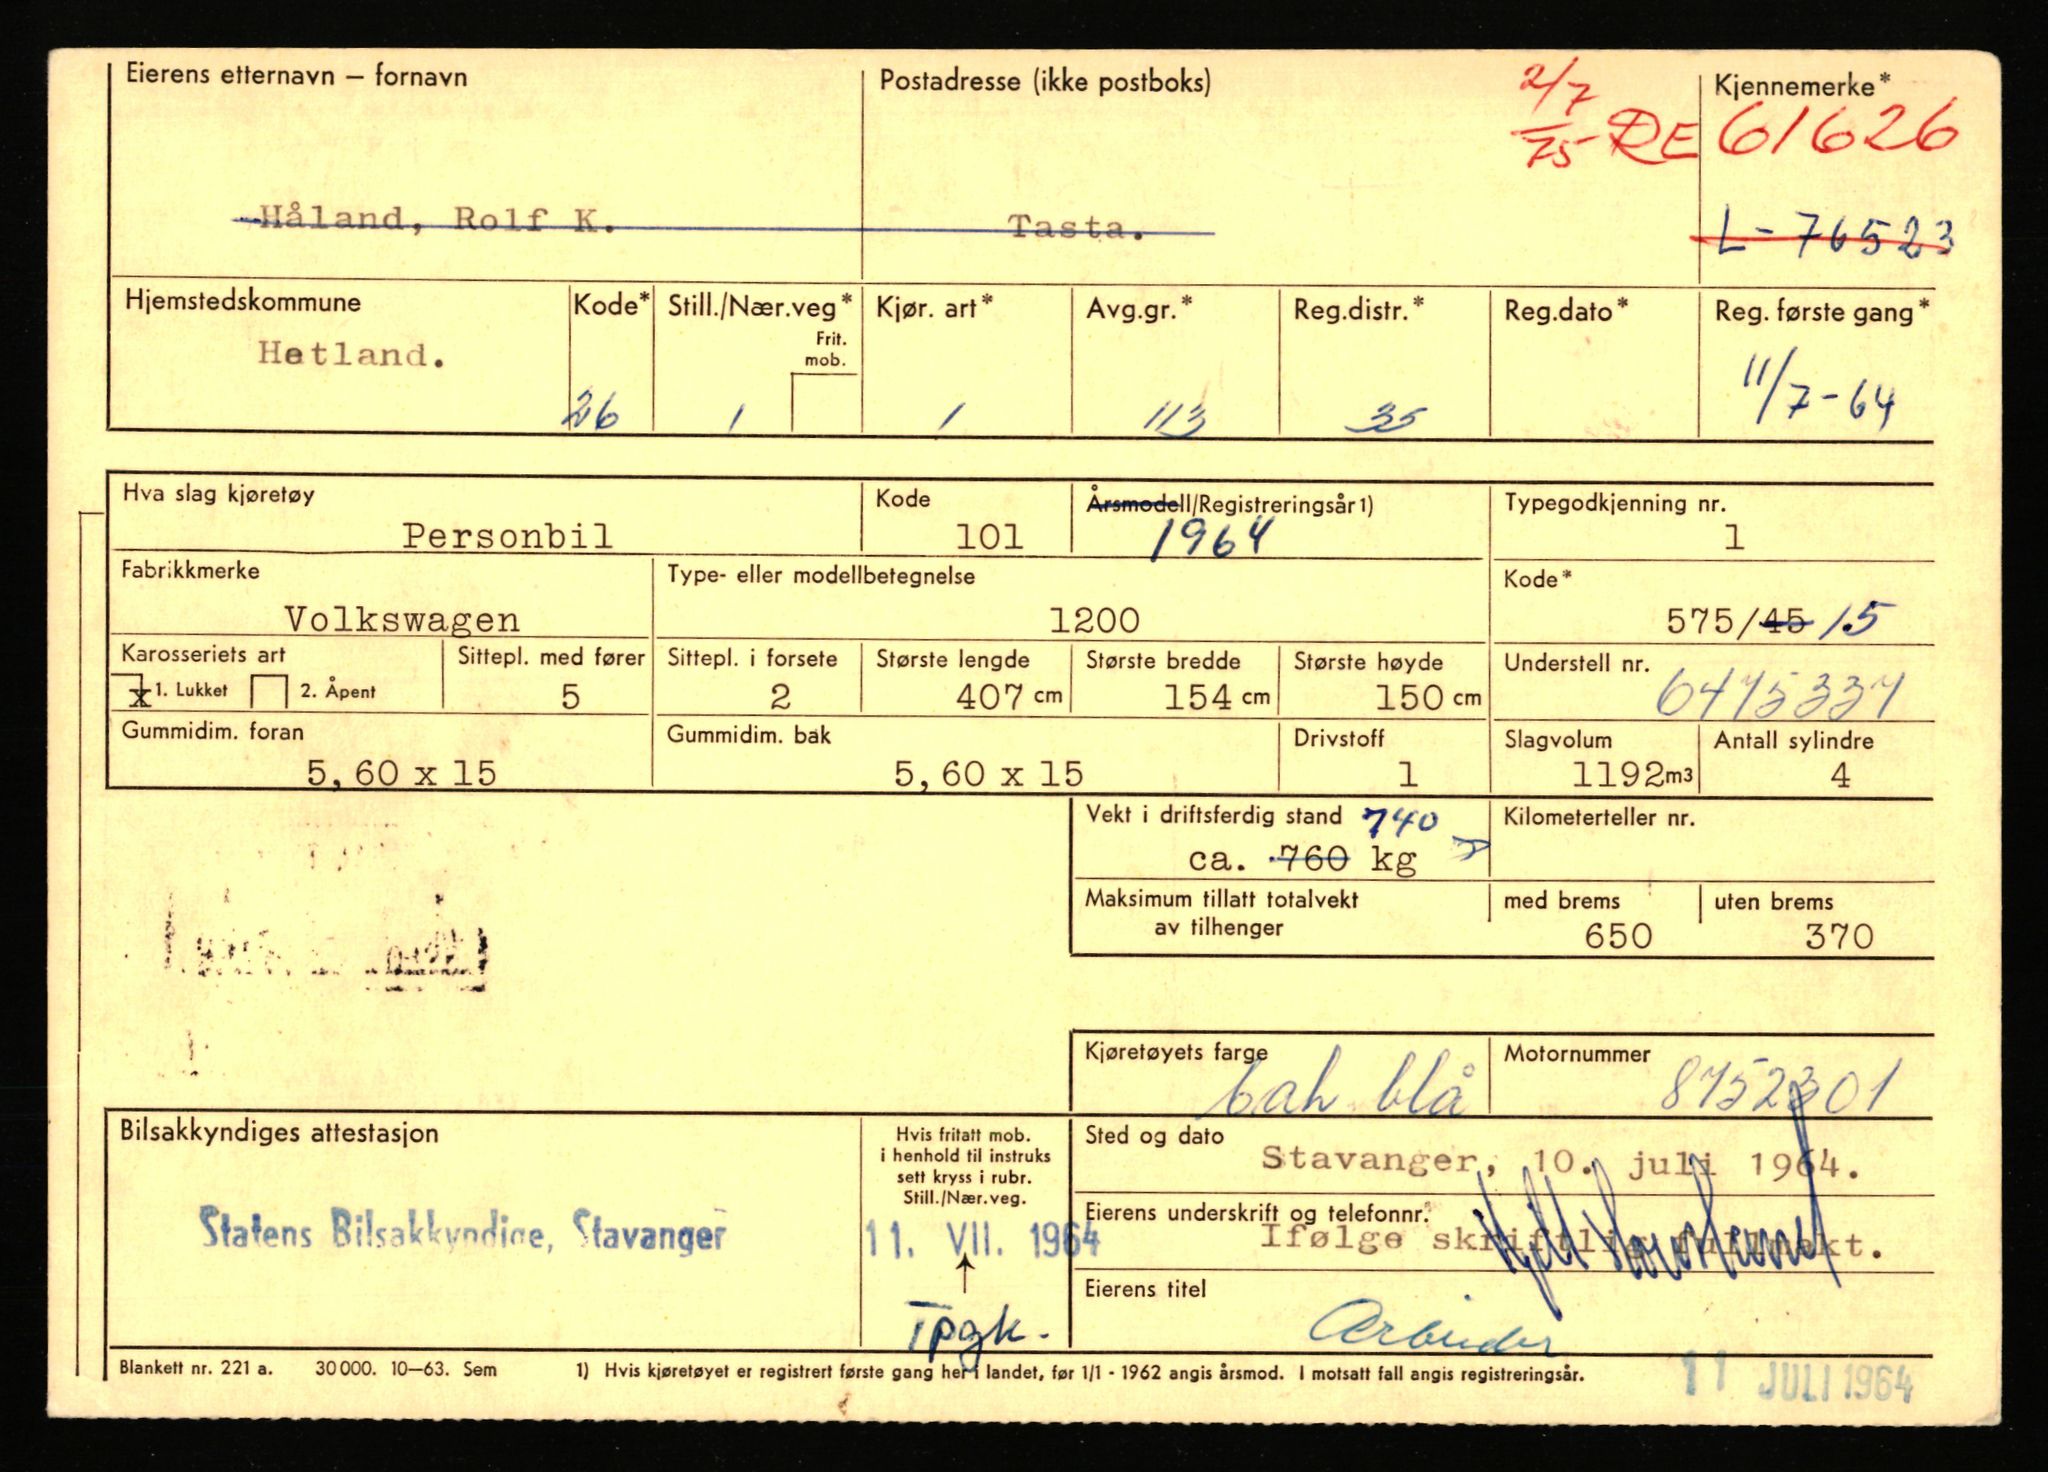 Eierens etternavn – fornavn
Postadresse (ikke postboks)
2/7
75 RE
Kjennemerke*
61626
Håland, Rolf K.
Tasta.
L-76523
Hjemstedskommune
Kode*
Still./Nær.veg*
Kjør. art*
Avg.gr.*
Reg.distr.*
Reg.dato*
Reg. første gang*
Frit.
mob.
Hetland.
26
1
1
113
35
11/7-64
Hva slag kjøretøy
Kode
Årsmodell/Registreringsår 1)
Typegodkjenning nr.
Personbil
101
1964
1
Fabrikkmerke
Type- eller modellbetegnelse
Kode*
Volkswagen
1200
575/45 15
Karosseriets art
Sittepl. med fører
Sittepl. i forsete
Største lengde
Største bredde
Største høyde
Understell nr.
x 1. Lukket
2. Åpent
5
2
407 cm
154 cm
150 cm
6475337
Gummidim. foran
Gummidim. bak
Drivstoff
Slagvolum
Antall sylindre
5,60 x 15
5,60 x 15
1
1192m3
4
Vekt i driftsferdig stand 740
Kilometerteller nr.
ca. 760 kg
Maksimum tillatt totalvekt
av tilhenger
med brems
uten brems
650
370
Kjøretøyets farge
Motornummer
bah blå
8752301
Bilsakkyndiges attestasjon
Hvis fritatt mob.
i henhold til instruks
sett kryss i rubr.
Still./Nær.veg.
Sted og dato
Stavanger, 10. juli 1964.
Statens Bilsakkyndige, Stavanger
11. VII. 1964
Eierens underskrift og telefonnr.
Ifølge skriftlig fullmakt.
Eierens titel
Tpgk.
Arbeider
Blankett nr. 221 a. 30 000. 10–63. Sem
1) Hvis kjøretøyet er registrert første gang her i landet, før 1/1 - 1962 angis årsmod. I motsatt fall angis registreringsår.
11 JULI 1964